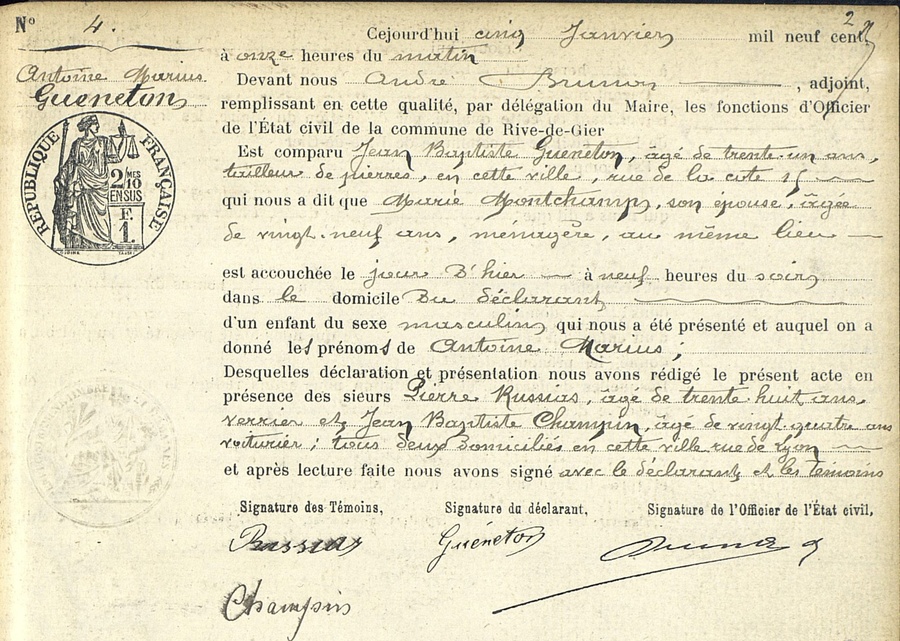 N° 4.
2
Cejourd'hui cinq Janvier mil neuf cent
à onze heures du matin
Antoine Marius
Guéneton
Devant nous André Brunon, adjoint,
remplissant en cette qualité, par délégation du Maire, les fonctions d'Officier
de l'État civil de la commune de Rive-de-Gier
Est comparu Jean Baptiste Guéneton, âgé de trente-un ans,
tailleur de pierres, en cette ville, rue de la cote 15
qui nous a dit que Marie Montchamp, son épouse, âgée
de vingt-neuf ans, ménagère, au même lieu
est accouchée le jour d'hier à neuf heures du soir
dans le domicile du déclarant
d'un enfant du sexe masculin qui nous a été présenté et auquel on a
donné les prénoms de Antoine Marius;
Desquelles déclaration et présentation nous avons rédigé le présent acte en
présence des sieurs Pierre Russias, âgé de trente huit ans
verrier et Jean Baptiste Champin, âgé de vingt-quatre ans
voiturier; tous deux domiciliés en cette ville rue de Lyon
et après lecture faite nous avons signé avec le déclarant et les témoins
RÉPUBLIQUE FRANÇAISE
2 MES
10
EN SUS
F.
1.
Signature des Témoins, Signature du déclarant, Signature de l'Officier de l'État civil,
Guéneton
Champin